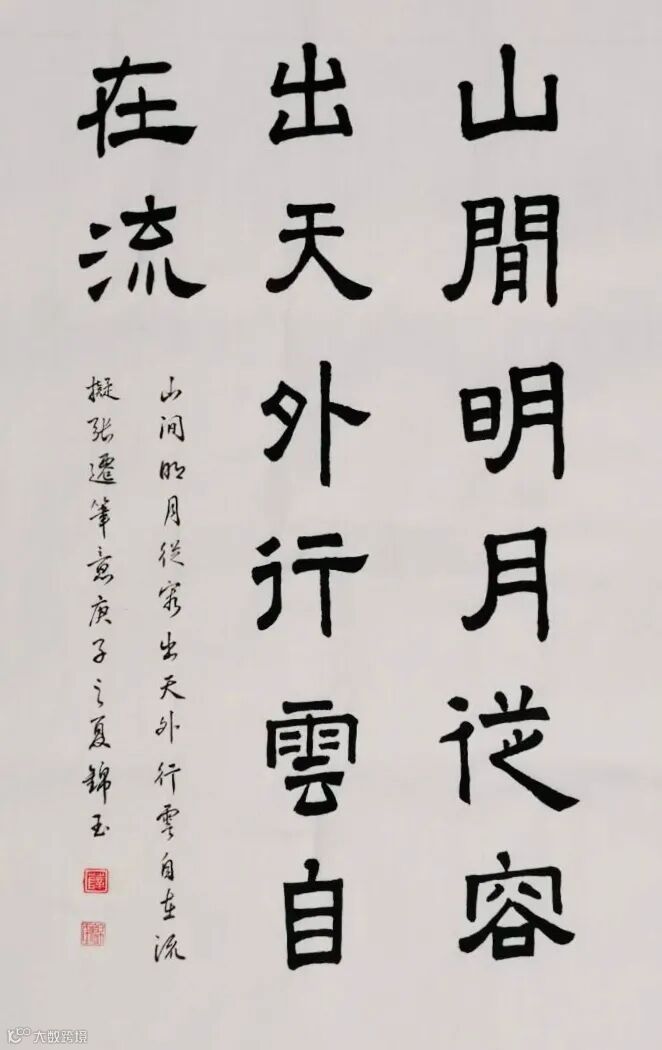 山間明月從容
出天外行雲自
在流
山間明月從容出天外行雲自在流
擬張遷筆意庚子之夏錦玉
大数跨境